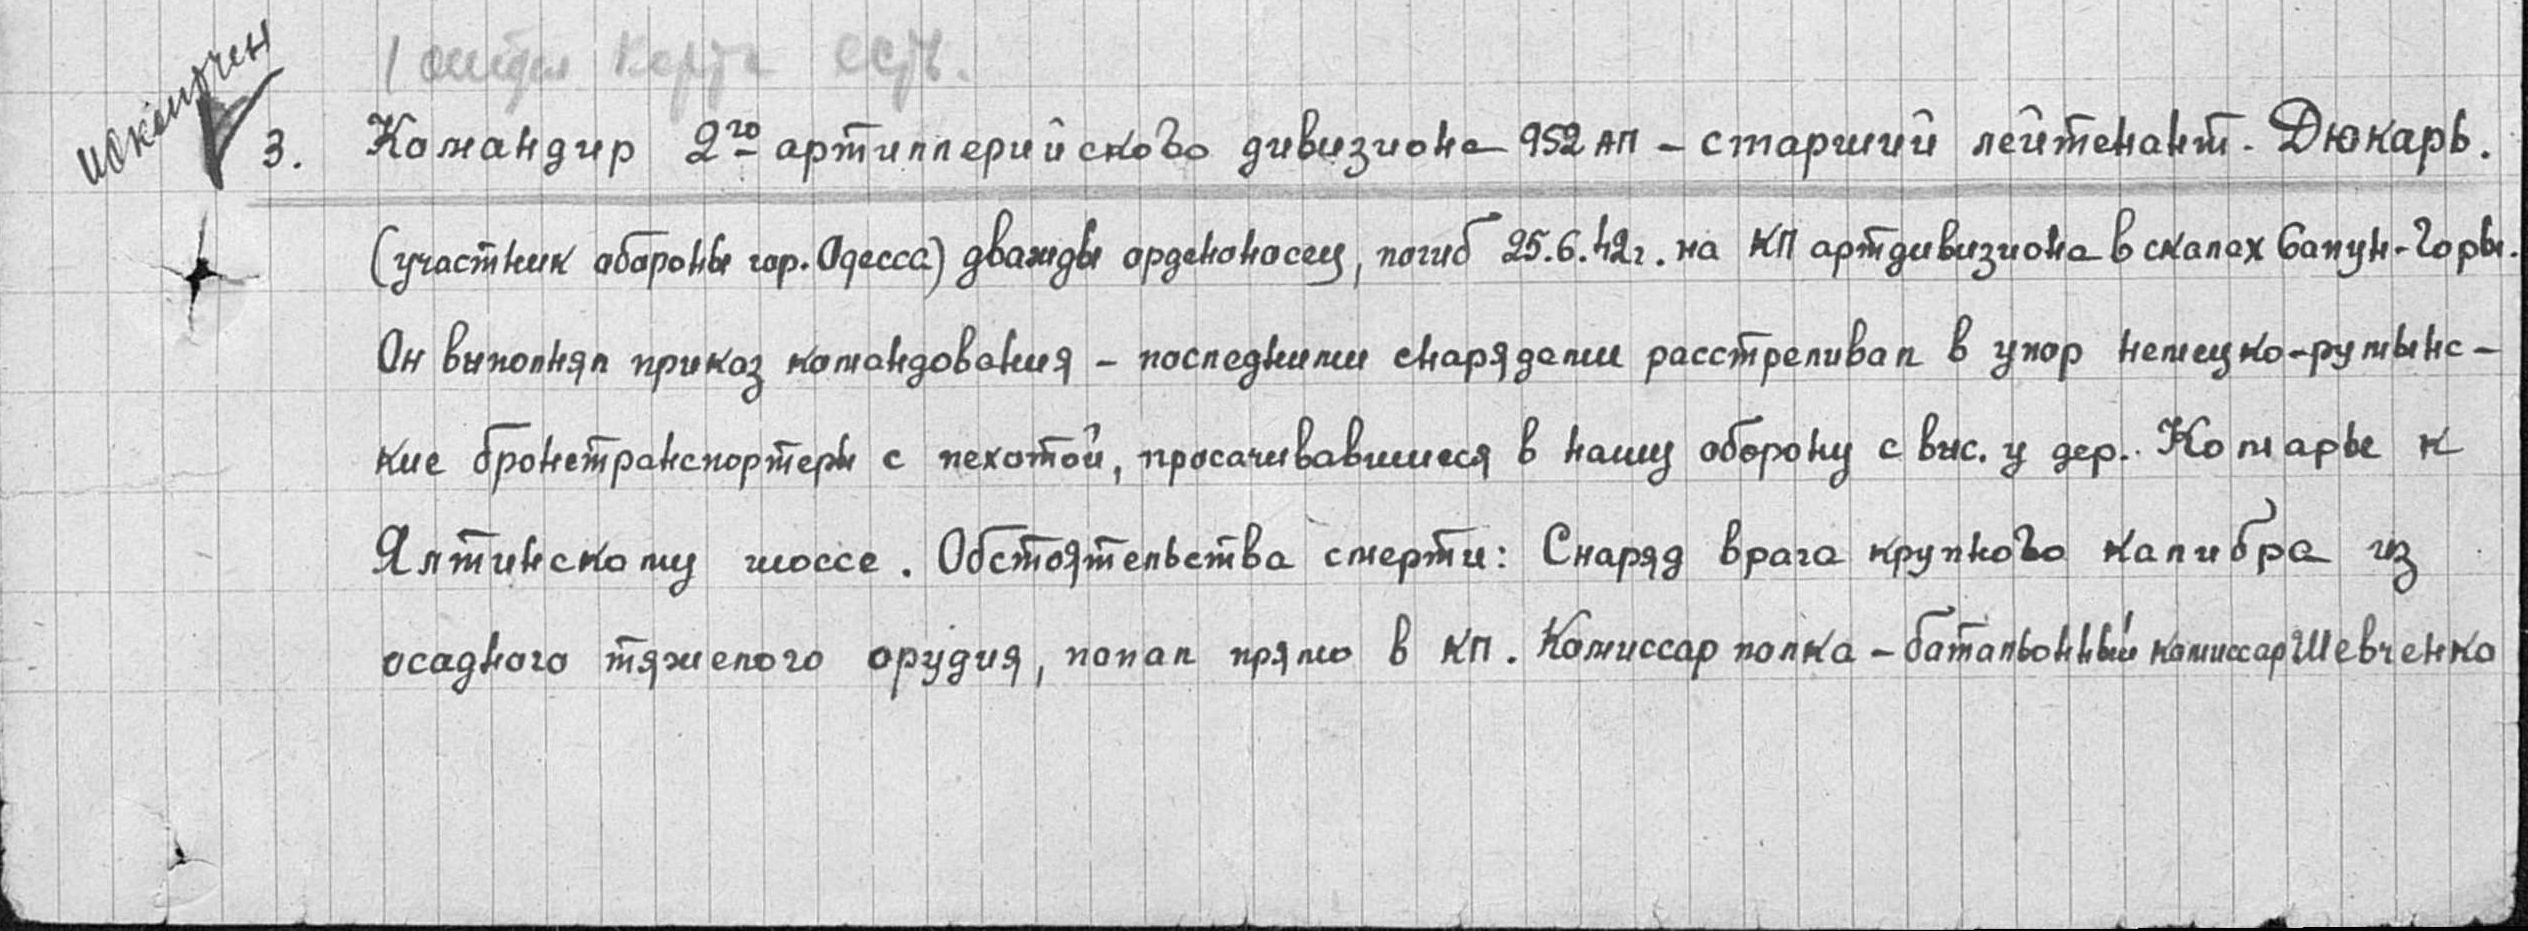 исключен
карта есть.
3. Командир 2го артиллерийского дивизиона 952 АП – старший лейтенант. Дюкарь.
(участник обороны гор. Одесса) дважды орденоносец, погиб 25.6.42г. на КП артдивизиона в скалах Сапун-Горы.
Он выполнял приказ командования – последними снарядами расстреливал в упор немецко-румынс-
кие бронетранспортеры с пехотой, просачивавшиеся в нашу оборону с выс. у дер. Комары к
Ялтинскому шоссе. Обстоятельства смерти: Снаряд врага крупного калибра из
осадного тяжелого орудия, попал прямо в КП. Комиссар полка – батальонный комиссар Шевченко